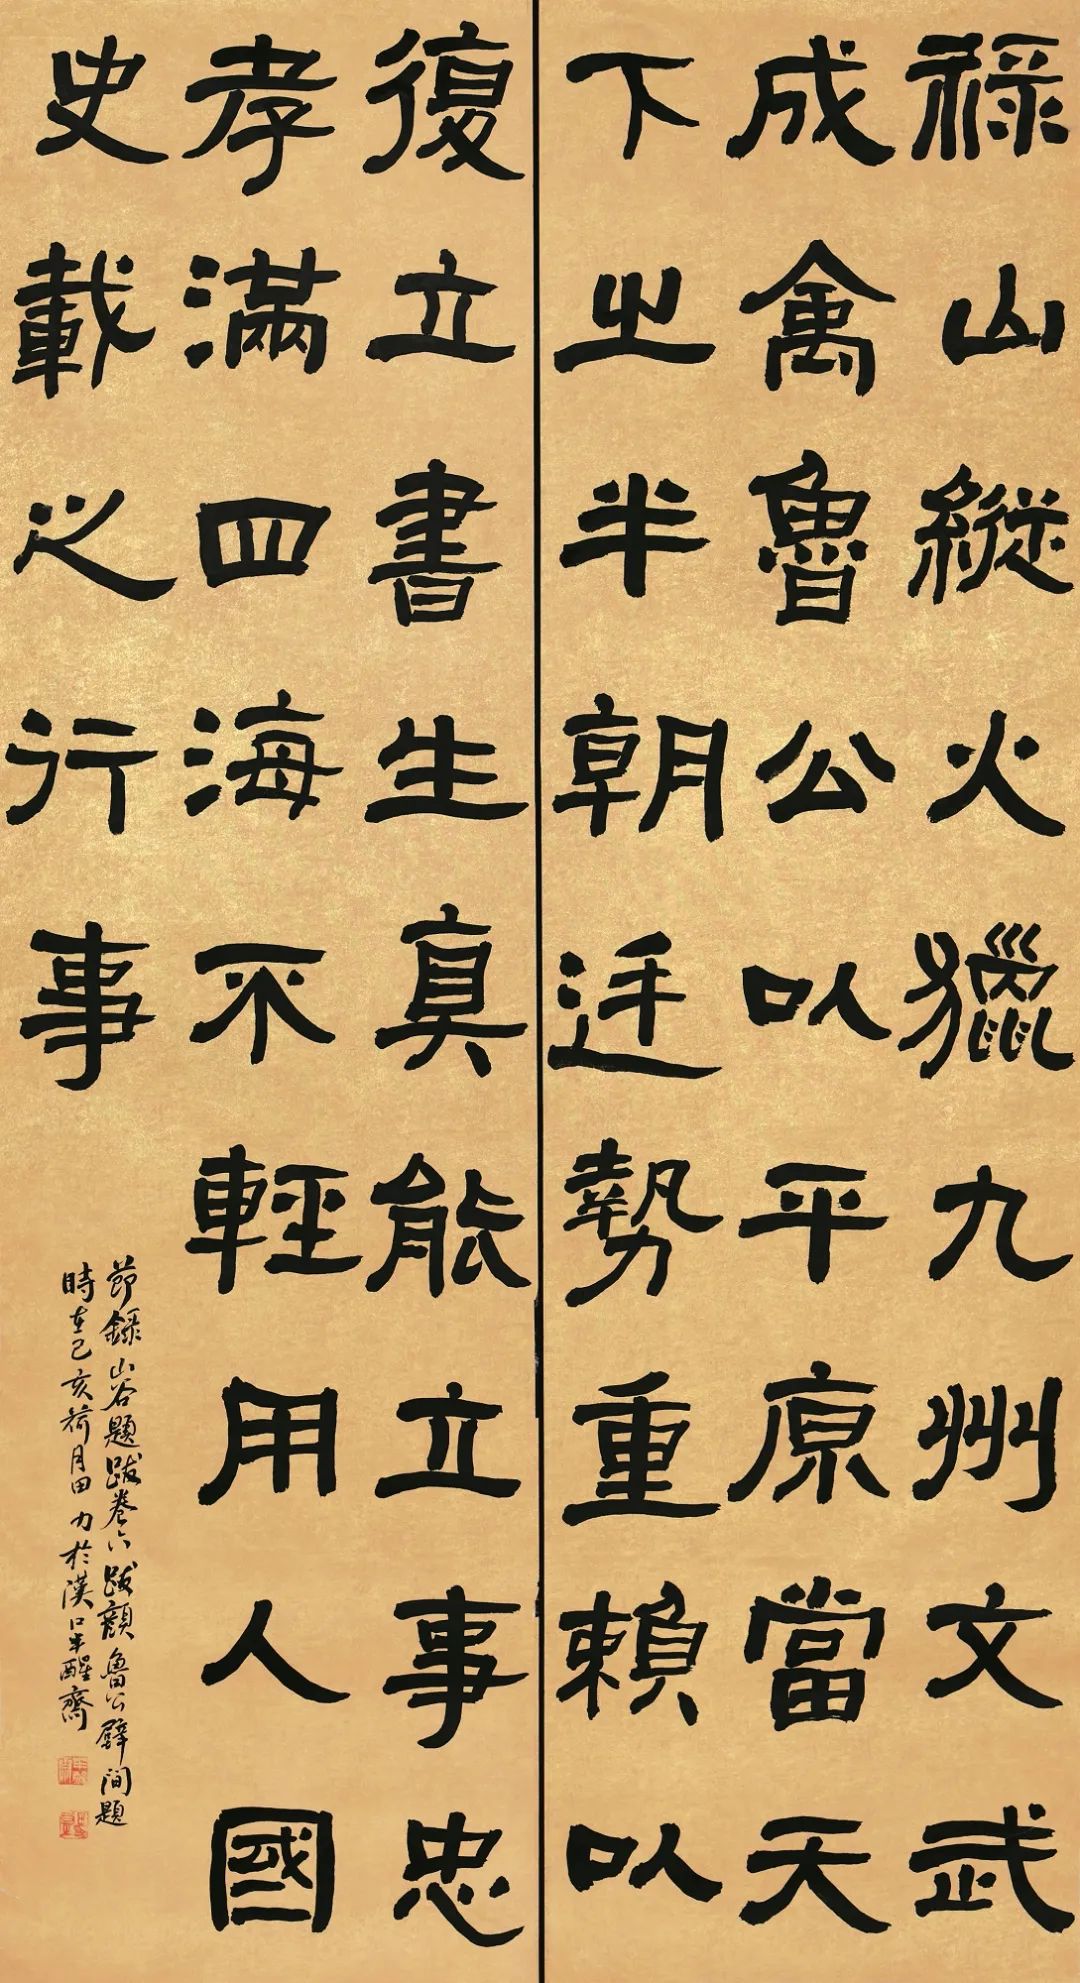 祿山縱火獵九州文武
成禽魯公以平原當天
下之半朝廷勢重賴以
復立書生真能立事忠
孝滿四海不輕用人國
史載之行事
節錄山谷題跋卷六跋顏魯公壁間題
時在己亥荷月田力於漢口半醒齋